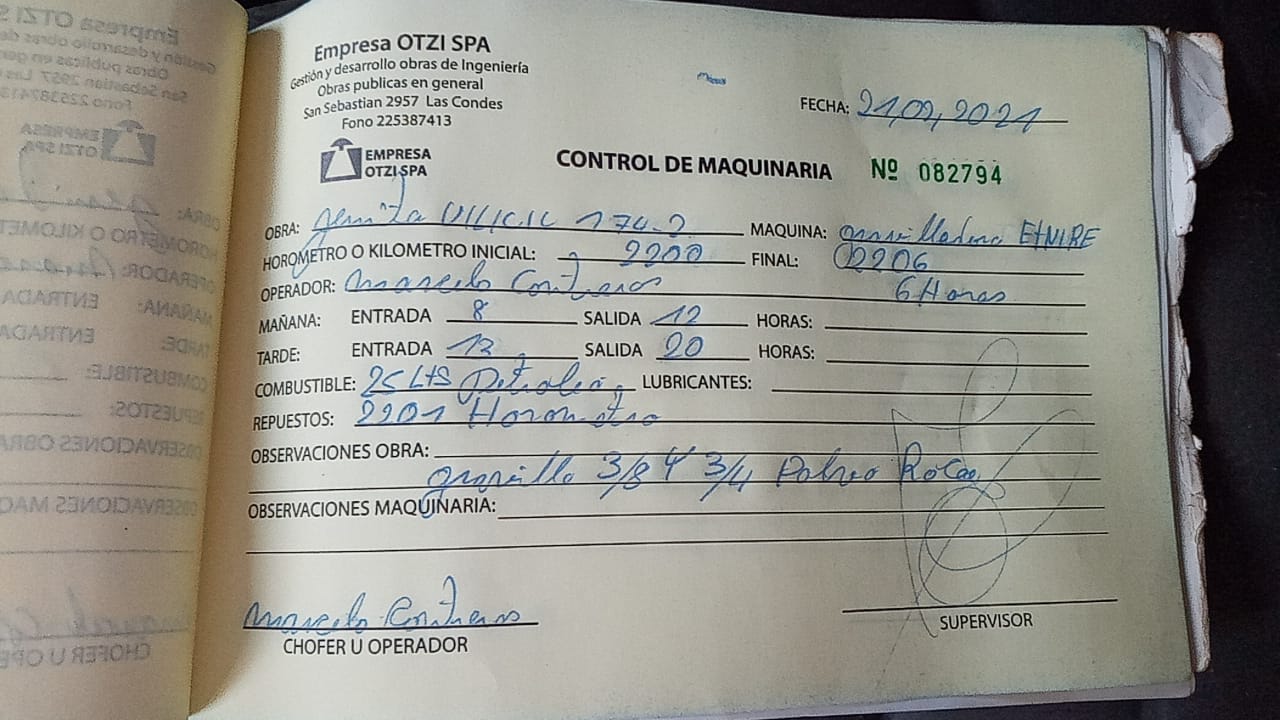 Empresa OTZI SPA
Gestión y desarrollo obras de Ingeniería
Obras publicas en general
San Sebastian 2957 Las Condes
Fono 225387413
EMPRESA
OTZI SPA
FECHA: 21,02,2021
CONTROL DE MAQUINARIA Nº 082794
OBRA: MAQUINA: gravilladora ETNIRE
HOROMETRO O KILOMETRO INICIAL: 2200 FINAL: 02206
OPERADOR: Marcelo Contreras 6 Horas
MAÑANA: ENTRADA 8 SALIDA 12 HORAS:
TARDE: ENTRADA 13 SALIDA 20 HORAS:
COMBUSTIBLE: 25 Lts Petroleo LUBRICANTES:
REPUESTOS: 2201 Horometro
OBSERVACIONES OBRA:
gravilla 3/8 Y 3/4 Polvo Roca
OBSERVACIONES MAQUINARIA:
Marcelo Contreras
CHOFER U OPERADOR
SUPERVISOR